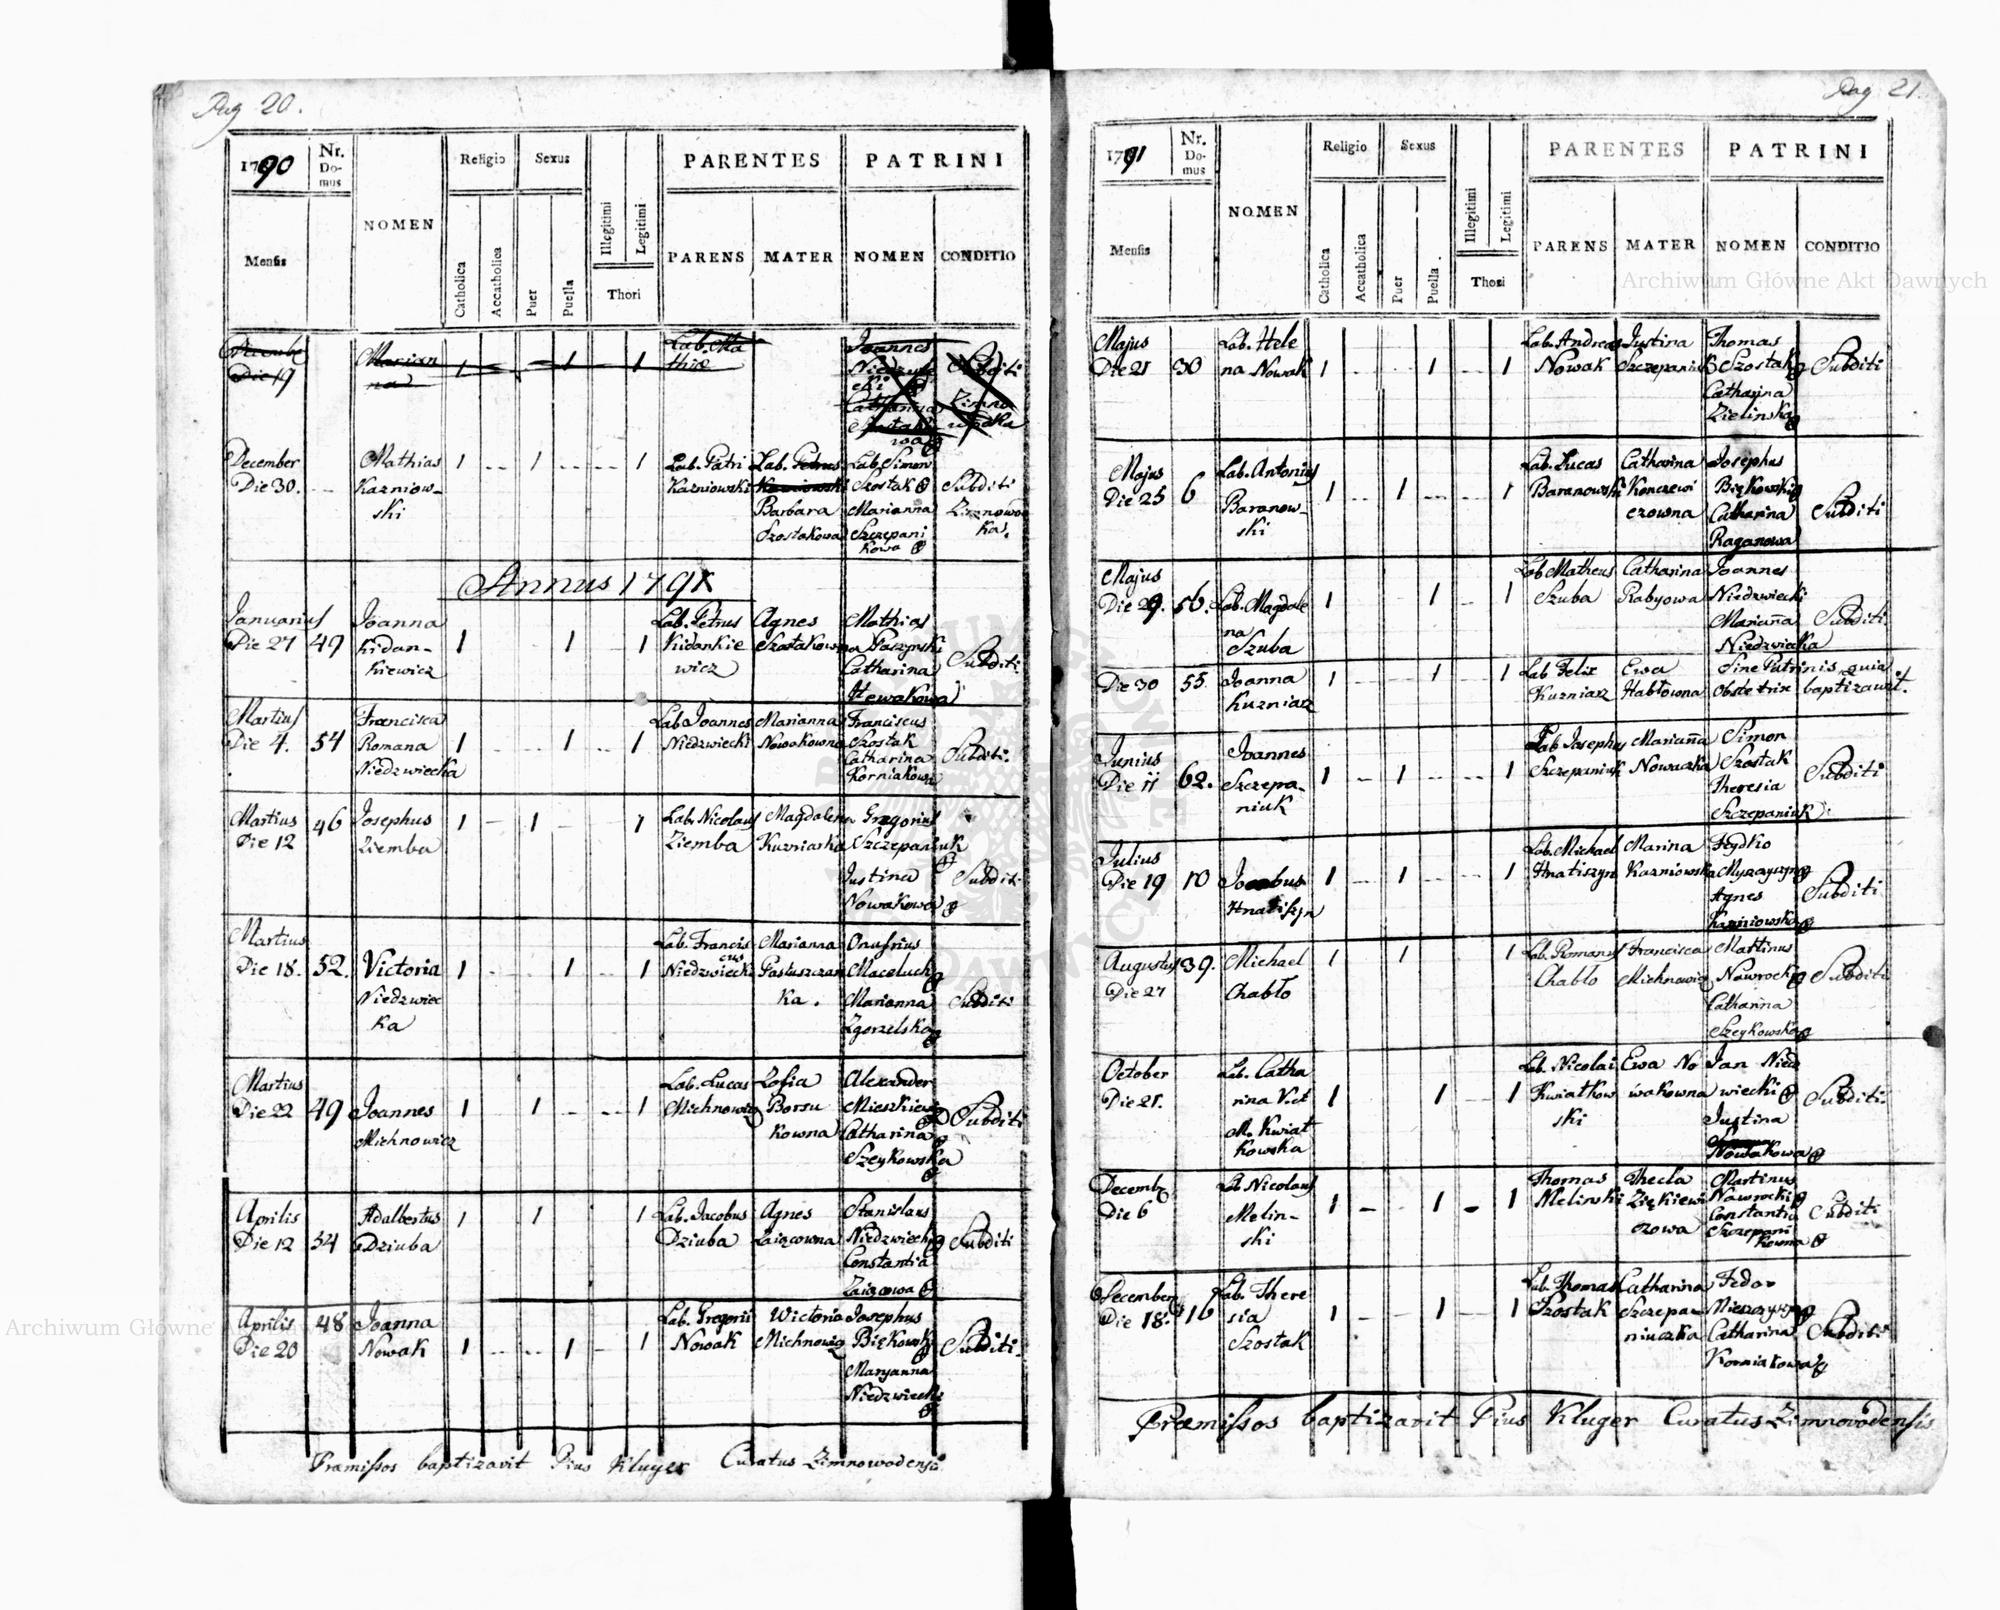 Pag 20.
1790
Nr. Domus
NOMEN
Religio
Sexus
PARENTES
PATRINI
Mensis
Catholica
Accatholica
Puer
Puella
Illegitimi
Legitimi
Thori
PARENS
MATER
NOMEN
CONDITIO
Decembe Marian Lab. Ma Joannes
Die 19 na 1 1 1 thiæ Subditi
December Mathias 1 1 1 Lab. Patri Lab. Petrus Lab. Simon
Die 30. Kazniow- Kazniowski Kazniowski Szostak Subditi
ski Barbara Marianna
Szostakowa Szczepani
kowa
Annus 1791
Januarius Joanna Lab. Petrus Agnes Mathias
Die 27 49 Kidan- 1 1 1 Kidankie Szostakowna Paczynski
kiewicz wicz Catharina Subditi
Hewakowa
Martius Francisca Lab. Joannes Marianna Franciscus
Die 4. 54 Romana 1 1 1 Niedzwiecki Nowakowna Szostak
Niedzwiecka Catharina Subditi.
Korniakowa
Martius 46 Josephus 1 1 1 Lab. Nicolaus Magdalena Gregorius
Die 12 Ziemba Ziemba Kuzniarka Szczepaniuk
Justina Subditi
Nowakowa
Martius Lab. Francis Marianna Onufrius
cus
Die 18. 52. Victoria 1 1 1 Niedzwiecki Pastuszczan Maceluch
Niedzwiec ka. Marianna Subditi
ka Zgorzelska
Martius Lab. Lucas Zofia Alexander
Die 22 49 Joannes 1 1 1 Michnowicz Borsu Mieszkiewicz Subditi
Michnowicz kowna Catharina
Szeykowska
Aprilis Adalbertus 1 1 1 Lab. Jacobus Agnes Stanislaus
Die 12 54 Dziuba Dziuba Zaiącowna Niedzwiecki Subditi
Constantia
Zaiącowa
Aprilis 48 Joanna Lab. Gregorii Wictoria Josephus
Die 20 Nowak 1 1 1 Nowak Michnowicz Biękowski Subditi.
Maryanna
Niedzwiecki
Præmissos baptizavit Pius Kluger Curatus Zimnowodensis
Pag 21.
1791
Nr. Domus
NOMEN
Religio
Sexus
PARENTES
PATRINI
Mensis
Catholica
Accatholica
Puer
Puella
Illegitimi
Legitimi
Thori
PARENS
MATER
NOMEN
CONDITIO
Majus Lab. Hele Lab. Andreas Justina Thomas
Die 21 30 na Nowak 1 1 1 Nowak Szczepaniuk Szostak Subditi
Catharina
Zielinska
Majus Lab. Antonius Lab. Lucas Catharina Josephus
Die 25 6 Baranow- 1 1 1 Baranowski Konczewi Biękowski
ski czowna Catharina Subditi
Raganowa
Majus Lab Matheus Catharina Joannes
Die 29. 56. Lab. Magdale 1 1 1 Szuba Rabyowa Niedzwiecki
na Marianna Subditi.
Szuba Niedzwiecka
Die 30 55 Joanna 1 1 1 Lab Felix Ewa Sine Patrinis quia
Kuzniarz Kuzniarz Habłowna Obstetrix baptizavit.
Junius Joannes Lab Josephus Marianna Simon
Die 11 62. Szczepa- 1 1 1 Szczepaniuk Nowaczka Szostak Subditi
niuk Theresia
Szczepaniuk
Julius Lab. Michael Marina Hydko
Die 19 10 Jacobus 1 1 1 Hnatiszyn Kazniowska Myszczyszyn
Hnatiszyn Agnes Subditi
Kazniowska
Augustus 39. Michael 1 1 1 Lab. Romanus Francisca Martinus
Die 27 Chabło Chabło Michnowicz Nawrocki Subditi
Catharina
Szeykowska
October Lab. Catha Lab. Nicolai Ewa No Jan Niedz
Die 21. rina V. et 1 1 1 Kwiatkow wakowna wiecki Subditi.
M. Kwiat ski Justina
kowska Nowakowa
Decembr Lab Nicolaus Thomas Thecla Martinus
Die 6 Melin- 1 1 1 Melinski Ziękiewi Nawrocki Subditi
ski czowa Constantia
Szczepani
kowna
December Lab. There Lab. Thomas Catharina Fedor
Die 18. 16 sia 1 1 1 Szostak Szczepa Mieszczyszyn
Szostak niuczka Catharina Subditi
Korniakowa
Præmissos baptizavit Pius Kluger Curatus Zimnowodensis
Archiwum Główne Akt Dawnych
Archiwum Główne Akt Dawnych